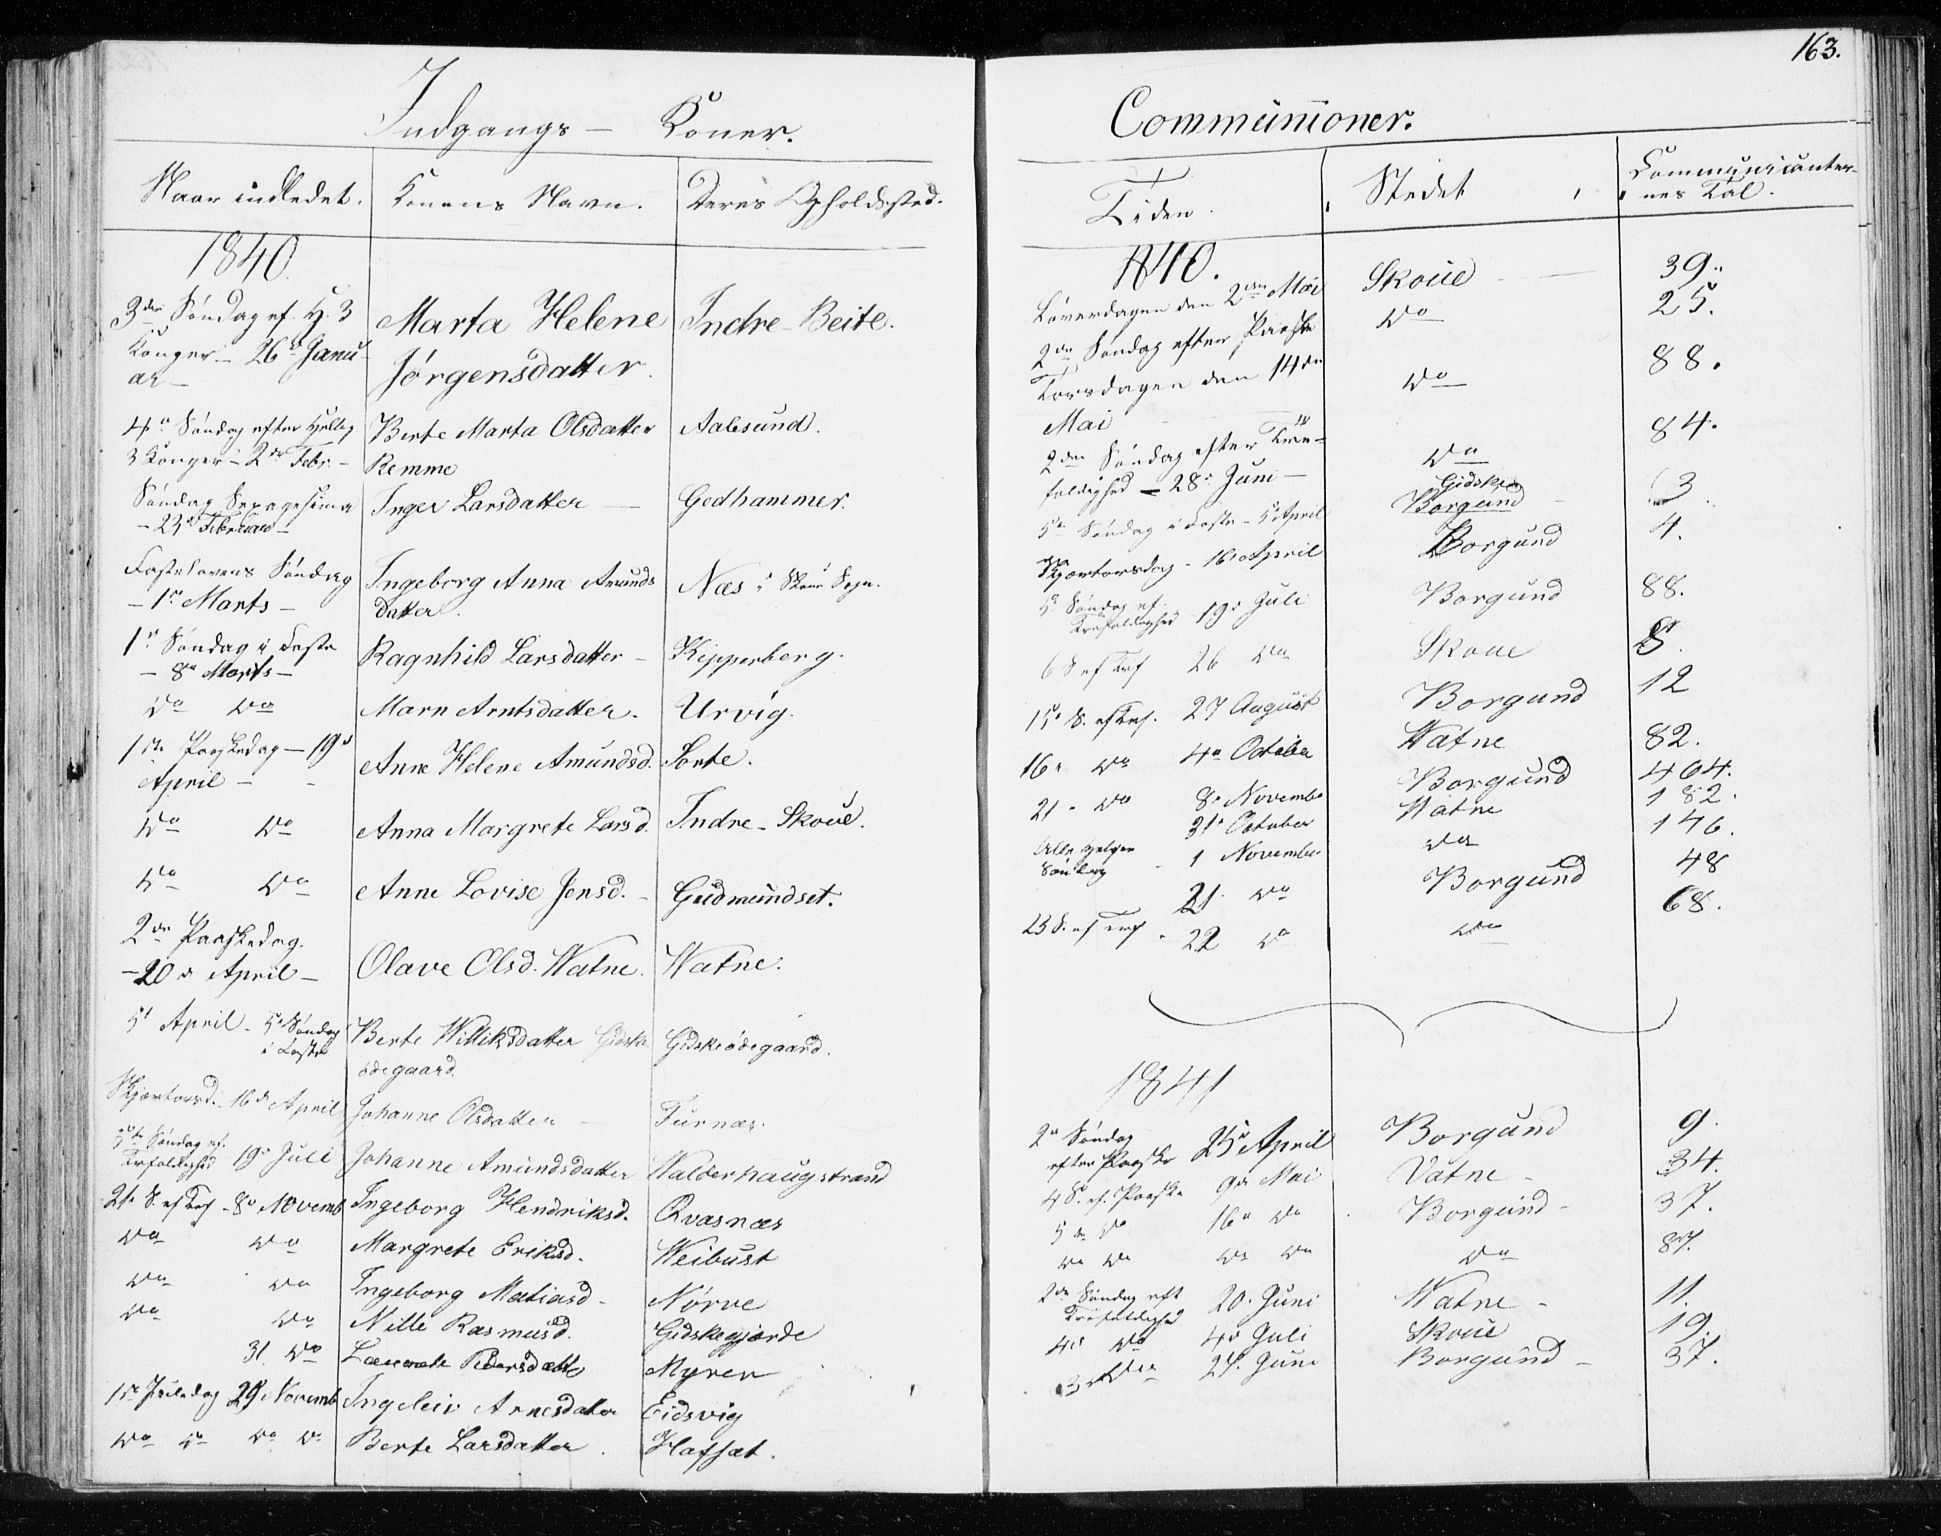 163.
Indgangs - Koner.
Naar indledet. Konens Navn. Deres Opholdssted.
1840
3die Søndag ef. H. 3 Marta Helene Indre-Beite.
Konger - 26de Janu-
ar - Jørgensdatter.
4de Søndag efter Hellig Berte Marta Olsdatter Aalesund.
3 Konger - 2den Febr. - Remme
Søndag Sexagesima Inger Larsdatter - Gedhammer.
- 23de Februar -
Fastelavens Søndag Ingeborg Anna Amunds Næs i Skoue Sogn.
- 1ste Marts - datter.
1ste Søndag i Faste Ragnhild Larsdatter - Kipperberg.
- 8de Marts -
do do Marn Arntsdatter. Urvig.
1ste Paaskedag - 19de Anne Helene Amundsd. Sorte.
April -
do do Anna Margrete Larsd. Indre-Skoue.
do do Anne Lovise Jensd. - Gudmundset.
2den Paaskedag.
- 20de April - Olave Olsd. Watne. Watne.
5t April - 5te Søndag Berte Williksdatter Gidske Gidskeødegaard.
i Faste ødegaard.
Skjærtorsd. 16de April Johanne Olsdatter - Furnæs.
5te Søndag ef.
Trefoldighed 19de Juli Johanne Amundsdatter Walderhaugstrand
21de S. ef Tref - 8de Novemb Ingeborg Hendriksd. Qvasnæs
do do Margrete Eriksd. Weibust
do do Ingeborg Matiasd - Nørve
do do Nille Rasmusd. Gidskegjærde
31. do Pedersdatte Myren
1ste Juledag 29 Novemb Ingeleiv Arnesdatter Eidsvig
do do do do Berte Larsdatter. Hafsæt.
Communioner.
Tiden. Stedet Communicanter-
nes Tal.
1840.
Løverdagen den 2den Mai Skoue 39.
2den Søndag efter Paaske do 25.
Torsdagen den 14den do 88.
Mai
2den Søndag efter Tre- do 84.
foldighed - 28de Juni -
Gidske
5te Søndag i Faste - 5te April Borgund 3
Skjærtorsdag - 16de April Borgund 4.
5te Søndag ef.
Trefoldighed - 19de Juli Borgund 88.
6 S ef Tref 26 do Skoue 8.
15de S. ef Tref. 27 August Borgund 12
16de do 4de October Watne 82.
21de do 8de Novembe Borgund 464.
31te October Watne 182.
Alle Helgen
Søndag 1 November do 146.
21. do Borgund 48
23 S. ef Tref - 22 do do 68.
1841
2den Søndag
efter Paaske 25de April Borgund 9.
4 S. ef. Paaske 9de Mai Vatne - 34.
5te do 16de do Borgund - 37.
do do do do do 87.
2den Søndag eft
Trefoldighed 20. Juni Watne - 11.
4de do 4de Juli Skoue 19
3die do 27. Juni Borgund - 37.